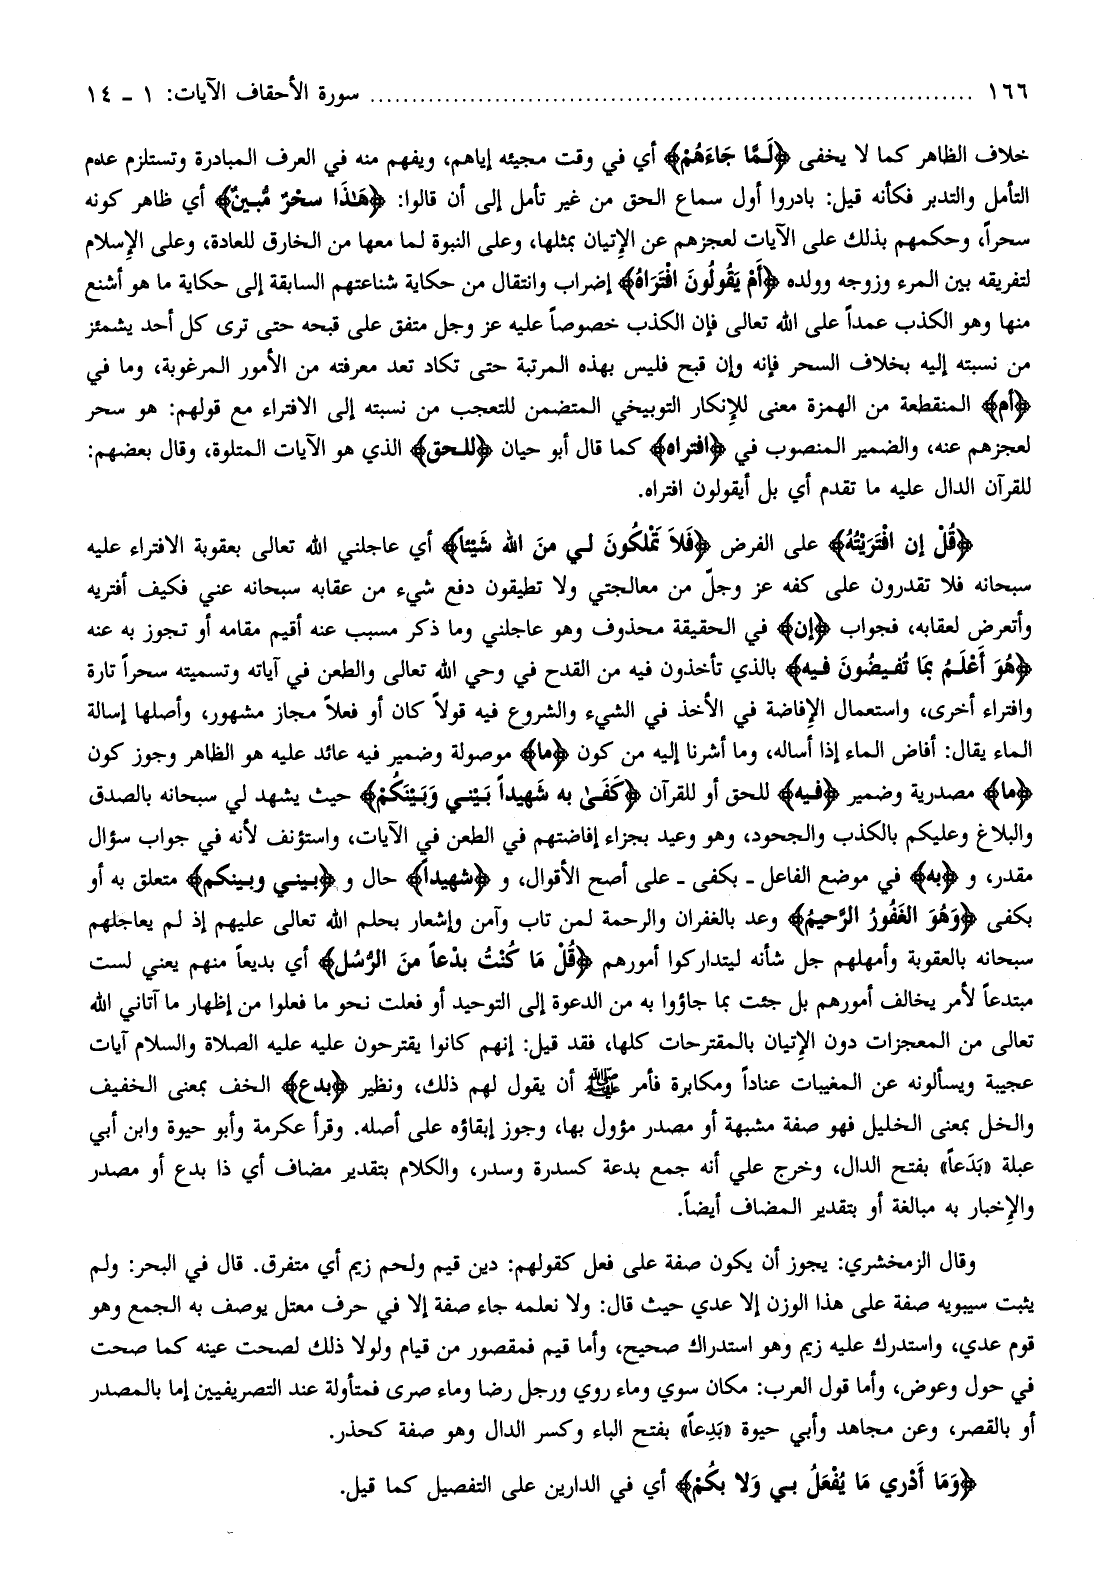 ١٦٦ ........................................................................ سورة الأحقاف الآيات: ١ ـ ١٤
خلاف الظاهر كما لا يخفى ﴿لَمَّا جَاءَهُمْ﴾ أي في وقت مجيئه إياهم، ويفهم منه في العرف المبادرة وتستلزم عدم
التأمل والتدبر فكأنه قيل: بادروا أول سماع الحق من غير تأمل إلى أن قالوا: ﴿هَذَا سحْرٌ مُّبينٌ﴾ أي ظاهر كونه
سحراً، وحكمهم بذلك على الآيات لعجزهم عن الإتيان بمثلها، وعلى النبوة لما معها من الخارق للعادة، وعلى الإسلام
لتفريقه بين المرء وزوجه وولده ﴿أَمْ يَقُولُونَ افْتَرَاهُ﴾ إضراب وانتقال من حكاية شناعتهم السابقة إلى حكاية ما هو أشنع
منها وهو الكذب عمداً على الله تعالى فإن الكذب خصوصاً عليه عز وجل متفق على قبحه حتى ترى كل أحد يشمئز
من نسبته إليه بخلاف السحر فإنه وإن قبح فليس بهذه المرتبة حتى تكاد تعد معرفته من الأمور المرغوبة، وما في
﴿أم﴾ المنقطعة من الهمزة معنى للإنكار التوبيخي المتضمن للتعجب من نسبته إلى الافتراء مع قولهم: هو سحر
لعجزهم عنه، والضمير المنصوب في ﴿افتراه﴾ كما قال أبو حيان ﴿للحق﴾ الذي هو الآيات المتلوة، وقال بعضهم:
للقرآن الدال عليه ما تقدم أي بل أيقولون افتراه.
﴿قُلْ إن افْتَرَيْتُهُ﴾ على الفرض ﴿فَلاَ تَمْلكُونَ لي منَ الله شَيْئاً﴾ أي عاجلني الله تعالى بعقوبة الافتراء عليه
سبحانه فلا تقدرون على كفه عز وجلّ من معالجتي ولا تطيقون دفع شيء من عقابه سبحانه عني فكيف أفتريه
وأتعرض لعقابه، فجواب ﴿إن﴾ في الحقيقة محذوف وهو عاجلني وما ذكر مسبب عنه أقيم مقامه أو تجوز به عنه
﴿هُوَ أَعْلَمُ بمَا تُفيضُونَ فيه﴾ بالذي تأخذون فيه من القدح في وحي الله تعالى والطعن في آياته وتسميته سحراً تارة
وافتراء أخرى، واستعمال الإفاضة في الأخذ في الشيء والشروع فيه قولاً كان أو فعلاً مجاز مشهور، وأصلها إسالة
الماء يقال: أفاض الماء إذا أساله، وما أشرنا إليه من كون ﴿ما﴾ موصولة وضمير فيه عائد عليه هو الظاهر وجوز كون
﴿ما﴾ مصدرية وضمير ﴿فيه﴾ للحق أو للقرآن ﴿كَفَىٰ به شَهيداً بَيْني وَبَيْنَكُمْ﴾ حيث يشهد لي سبحانه بالصدق
والبلاغ وعليكم بالكذب والجحود، وهو وعيد بجزاء إفاضتهم في الطعن في الآيات، واستؤنف لأنه في جواب سؤال
مقدر، و ﴿به﴾ في موضع الفاعل ـ بكفى ـ على أصح الأقوال، و ﴿شهيداً﴾ حال و ﴿بيني وبينكم﴾ متعلق به أو
بكفى ﴿وَهُوَ الغَفُورُ الرَّحيمُ﴾ وعد بالغفران والرحمة لمن تاب وآمن وإشعار بحلم الله تعالى عليهم إذ لم يعاجلهم
سبحانه بالعقوبة وأمهلهم جل شأنه ليتداركوا أمورهم ﴿قُلْ مَا كُنْتُ بدْعاً منَ الرُّسُل﴾ أي بديعاً منهم يعني لست
مبتدعاً لأمر يخالف أمورهم بل جئت بما جاؤوا به من الدعوة إلى التوحيد أو فعلت نحو ما فعلوا من إظهار ما آتاني الله
تعالى من المعجزات دون الإتيان بالمقترحات كلها، فقد قيل: إنهم كانوا يقترحون عليه عليه الصلاة والسلام آيات
عجيبة ويسألونه عن المغيبات عناداً ومكابرة فأمر ﷺ أن يقول لهم ذلك، ونظير ﴿بدع﴾ الخف بمعنى الخفيف
والخل بمعنى الخليل فهو صفة مشبهة أو مصدر مؤول بها، وجوز إبقاؤه على أصله. وقرأ عكرمة وأبو حيوة وابن أبي
عبلة «بَدَعاً» بفتح الدال، وخرج علي أنه جمع بدعة كسدرة وسدر، والكلام بتقدير مضاف أي ذا بدع أو مصدر
والإخبار به مبالغة أو بتقدير المضاف أيضاً.
وقال الزمخشري: يجوز أن يكون صفة على فعل كقولهم: دين قيم ولحم زيم أي متفرق. قال في البحر: ولم
يثبت سيبويه صفة على هذا الوزن إلا عدي حيث قال: ولا نعلمه جاء صفة إلا في حرف معتل يوصف به الجمع وهو
قوم عدي، واستدرك عليه زيم وهو استدراك صحيح، وأما قيم فمقصور من قيام ولولا ذلك لصحت عينه كما صحت
في حول وعوض، وأما قول العرب: مكان سوي وماء روي ورجل رضا وماء صرى فمتأولة عند التصريفيين إما بالمصدر
أو بالقصر، وعن مجاهد وأبي حيوة «بَدِعاً» بفتح الباء وكسر الدال وهو صفة كحذر.
﴿وَمَا أَدْري مَا يُفْعَلُ بي وَلا بكُمْ﴾ أي في الدارين على التفصيل كما قيل.